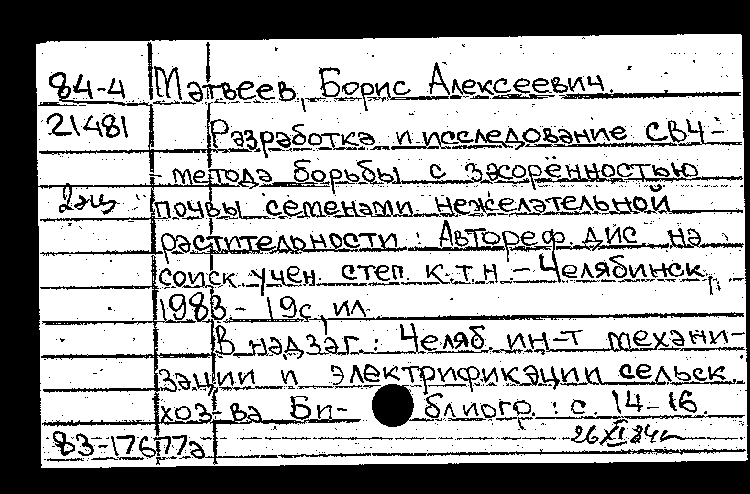 84-4 Матвеев, Борис Алексеевич.
21481 Разработка и исследование СВЧ-
метода борьбы с засорённостью
2экз почвы семенами нежелательной
растительности : Автореф. дис. на
соиск. учен. степ. к.т.н. - Челябинск,
1983. - 19с., ил.
В надзаг.: Челяб. ин-т механи-
зации и электрификации сельск.
хоз-ва Би- блиогр. : с. 14-16.
83-17677а 26 XI 84г